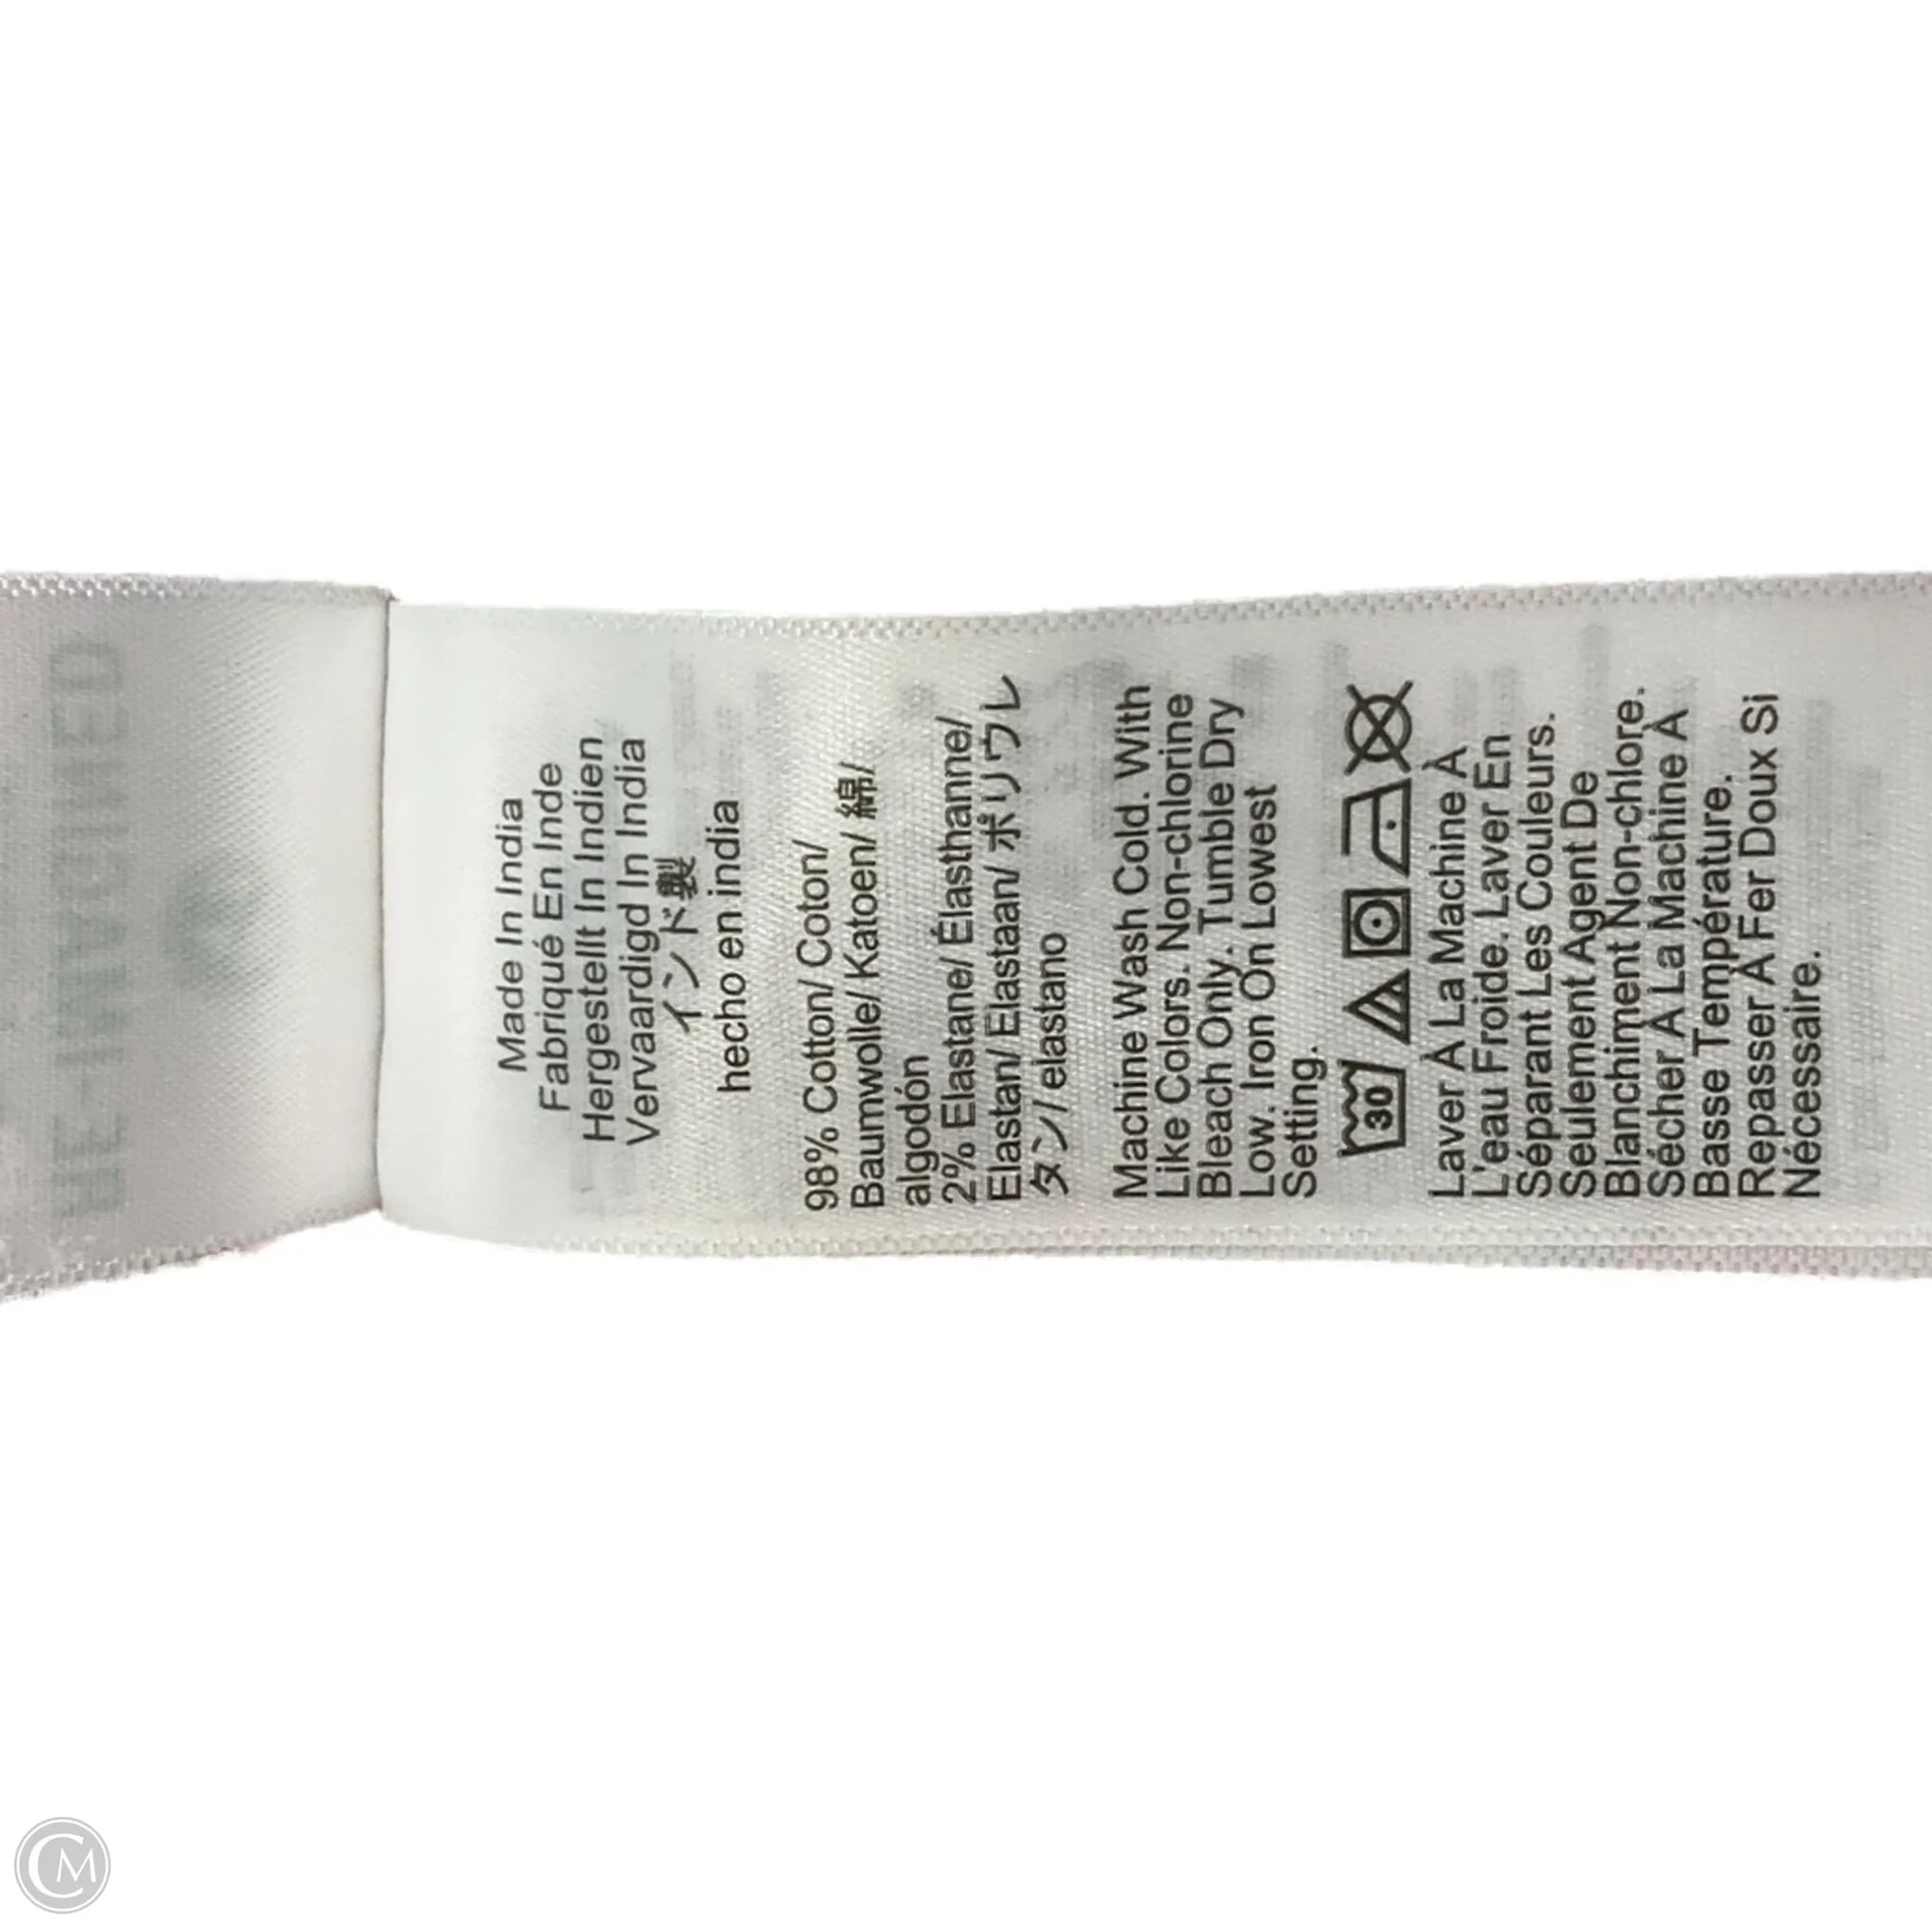 Made In India
Fabriqué En Inde
Hergestellt In Indien
Vervaardigd In India
インド製
hecho en india
98% Cotton/ Coton/
Baumwolle/ Katoen/ 綿/
algodón
2% Elastane/ Élasthanne/
Elastan/ Elastaan/ ポリウレ
タン/ elastano
Machine Wash Cold. With
Like Colors. Non-chlorine
Bleach Only. Tumble Dry
Low. Iron On Lowest
Setting.
30
Laver À La Machine À
L'eau Froide. Laver En
Séparant Les Couleurs.
Seulement Agent De
Blanchiment Non-chlore.
Sécher À La Machine À
Basse Température.
Repasser À Fer Doux Si
Nécessaire.
CM